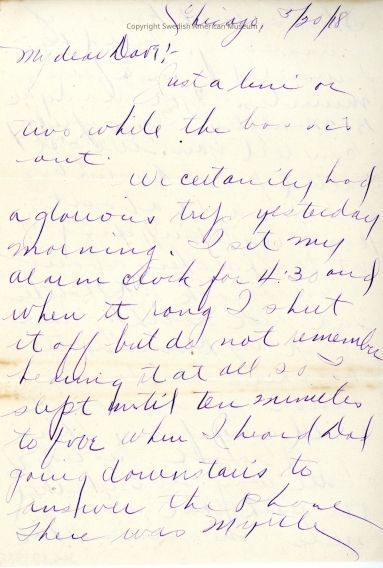 Copyright Swedish American Museum
Chicago, 5/20/18
My dear Dave!-
Just a line or
two while the boss is
out.
We certainly had
a glorious trip yesterday
morning. I set my
alarm clock for 4:30 and
when it rang I shut
it off but do not remember
hearing it at all so I
slept until ten minutes
to five when I heard Dad
going downstairs to
answer the phone
There was Myrtle